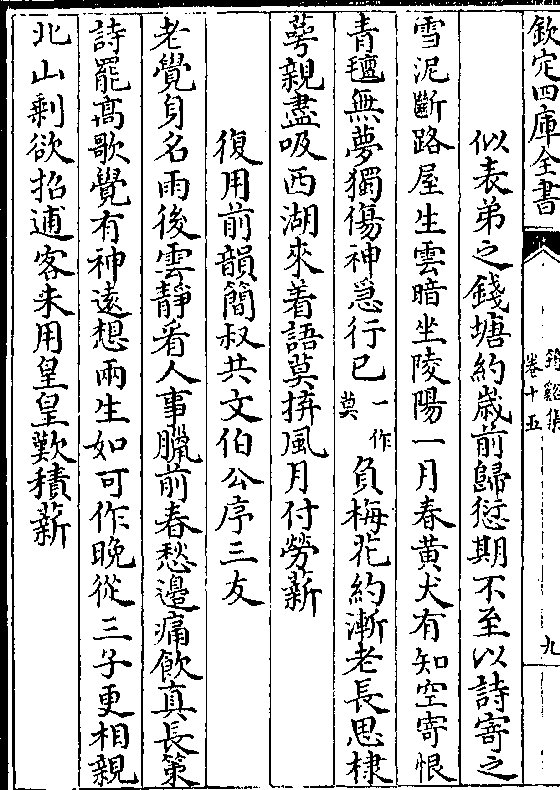 欽定四庫全書
卷十五
九
似表弟之錢塘約歳前歸愆期不至以詩寄之
雪泥斷路屋生雲暗坐陵陽一月春黄犬有知空寄恨
青氊無夢獨傷神急行已一作莫負梅花約漸老長思棣
萼親盡吸西湖來着語莫拚風月付勞薪
復用前韻簡叔共文伯公序三友
老覺身名雨後雲靜看人事臘前春愁邊痛飲真長策
詩罷髙歌覺有神逺想兩生如可作晩從三子更相親
北山剩欲招逋客未用皇皇歎積薪